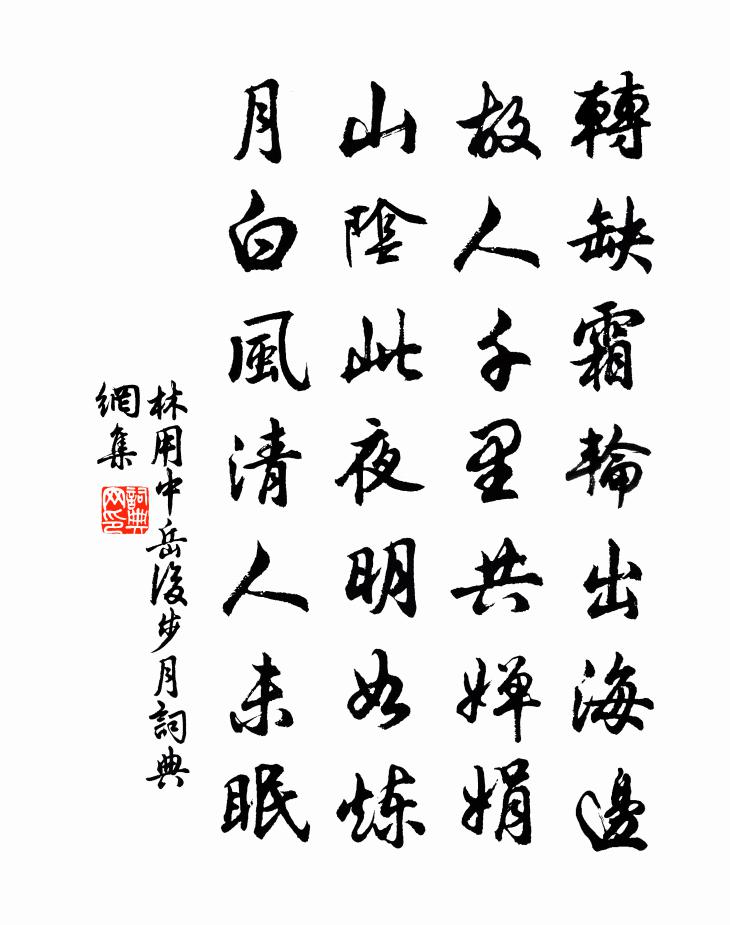 轉缺霜輪出海邊
故人千里共嬋娟
山陰此夜明如炼
月白風清人未眠
林用中岳後步月詞典
網集
詞典
网印